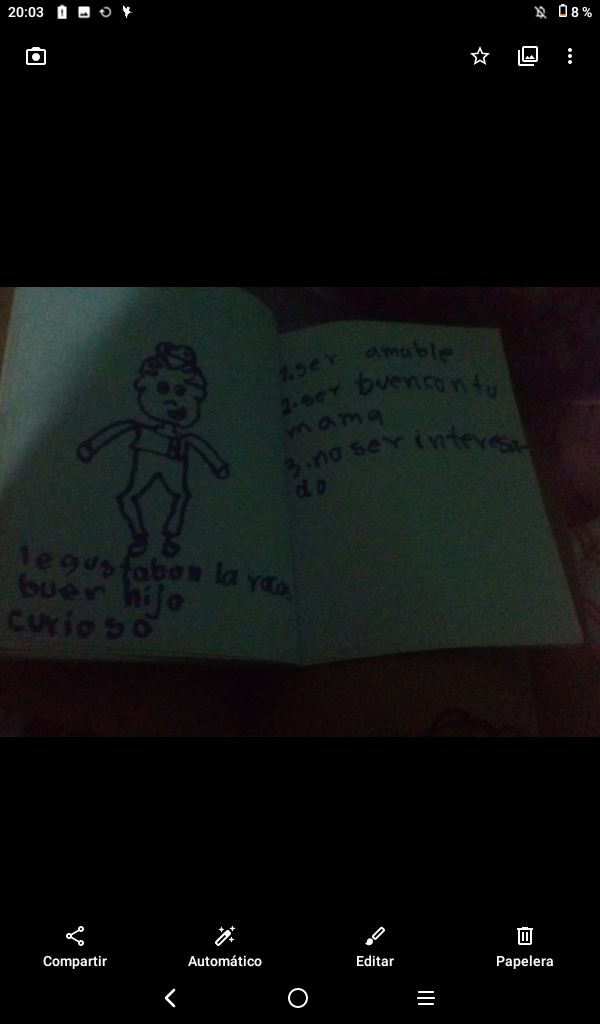 20:03
8 %
le gustaban la rocas
buer hijo
curioso
1. ser amable
2. ser buen con tu
mama
3. no ser interesa
do
Compartir
Automático
Editar
Papelera